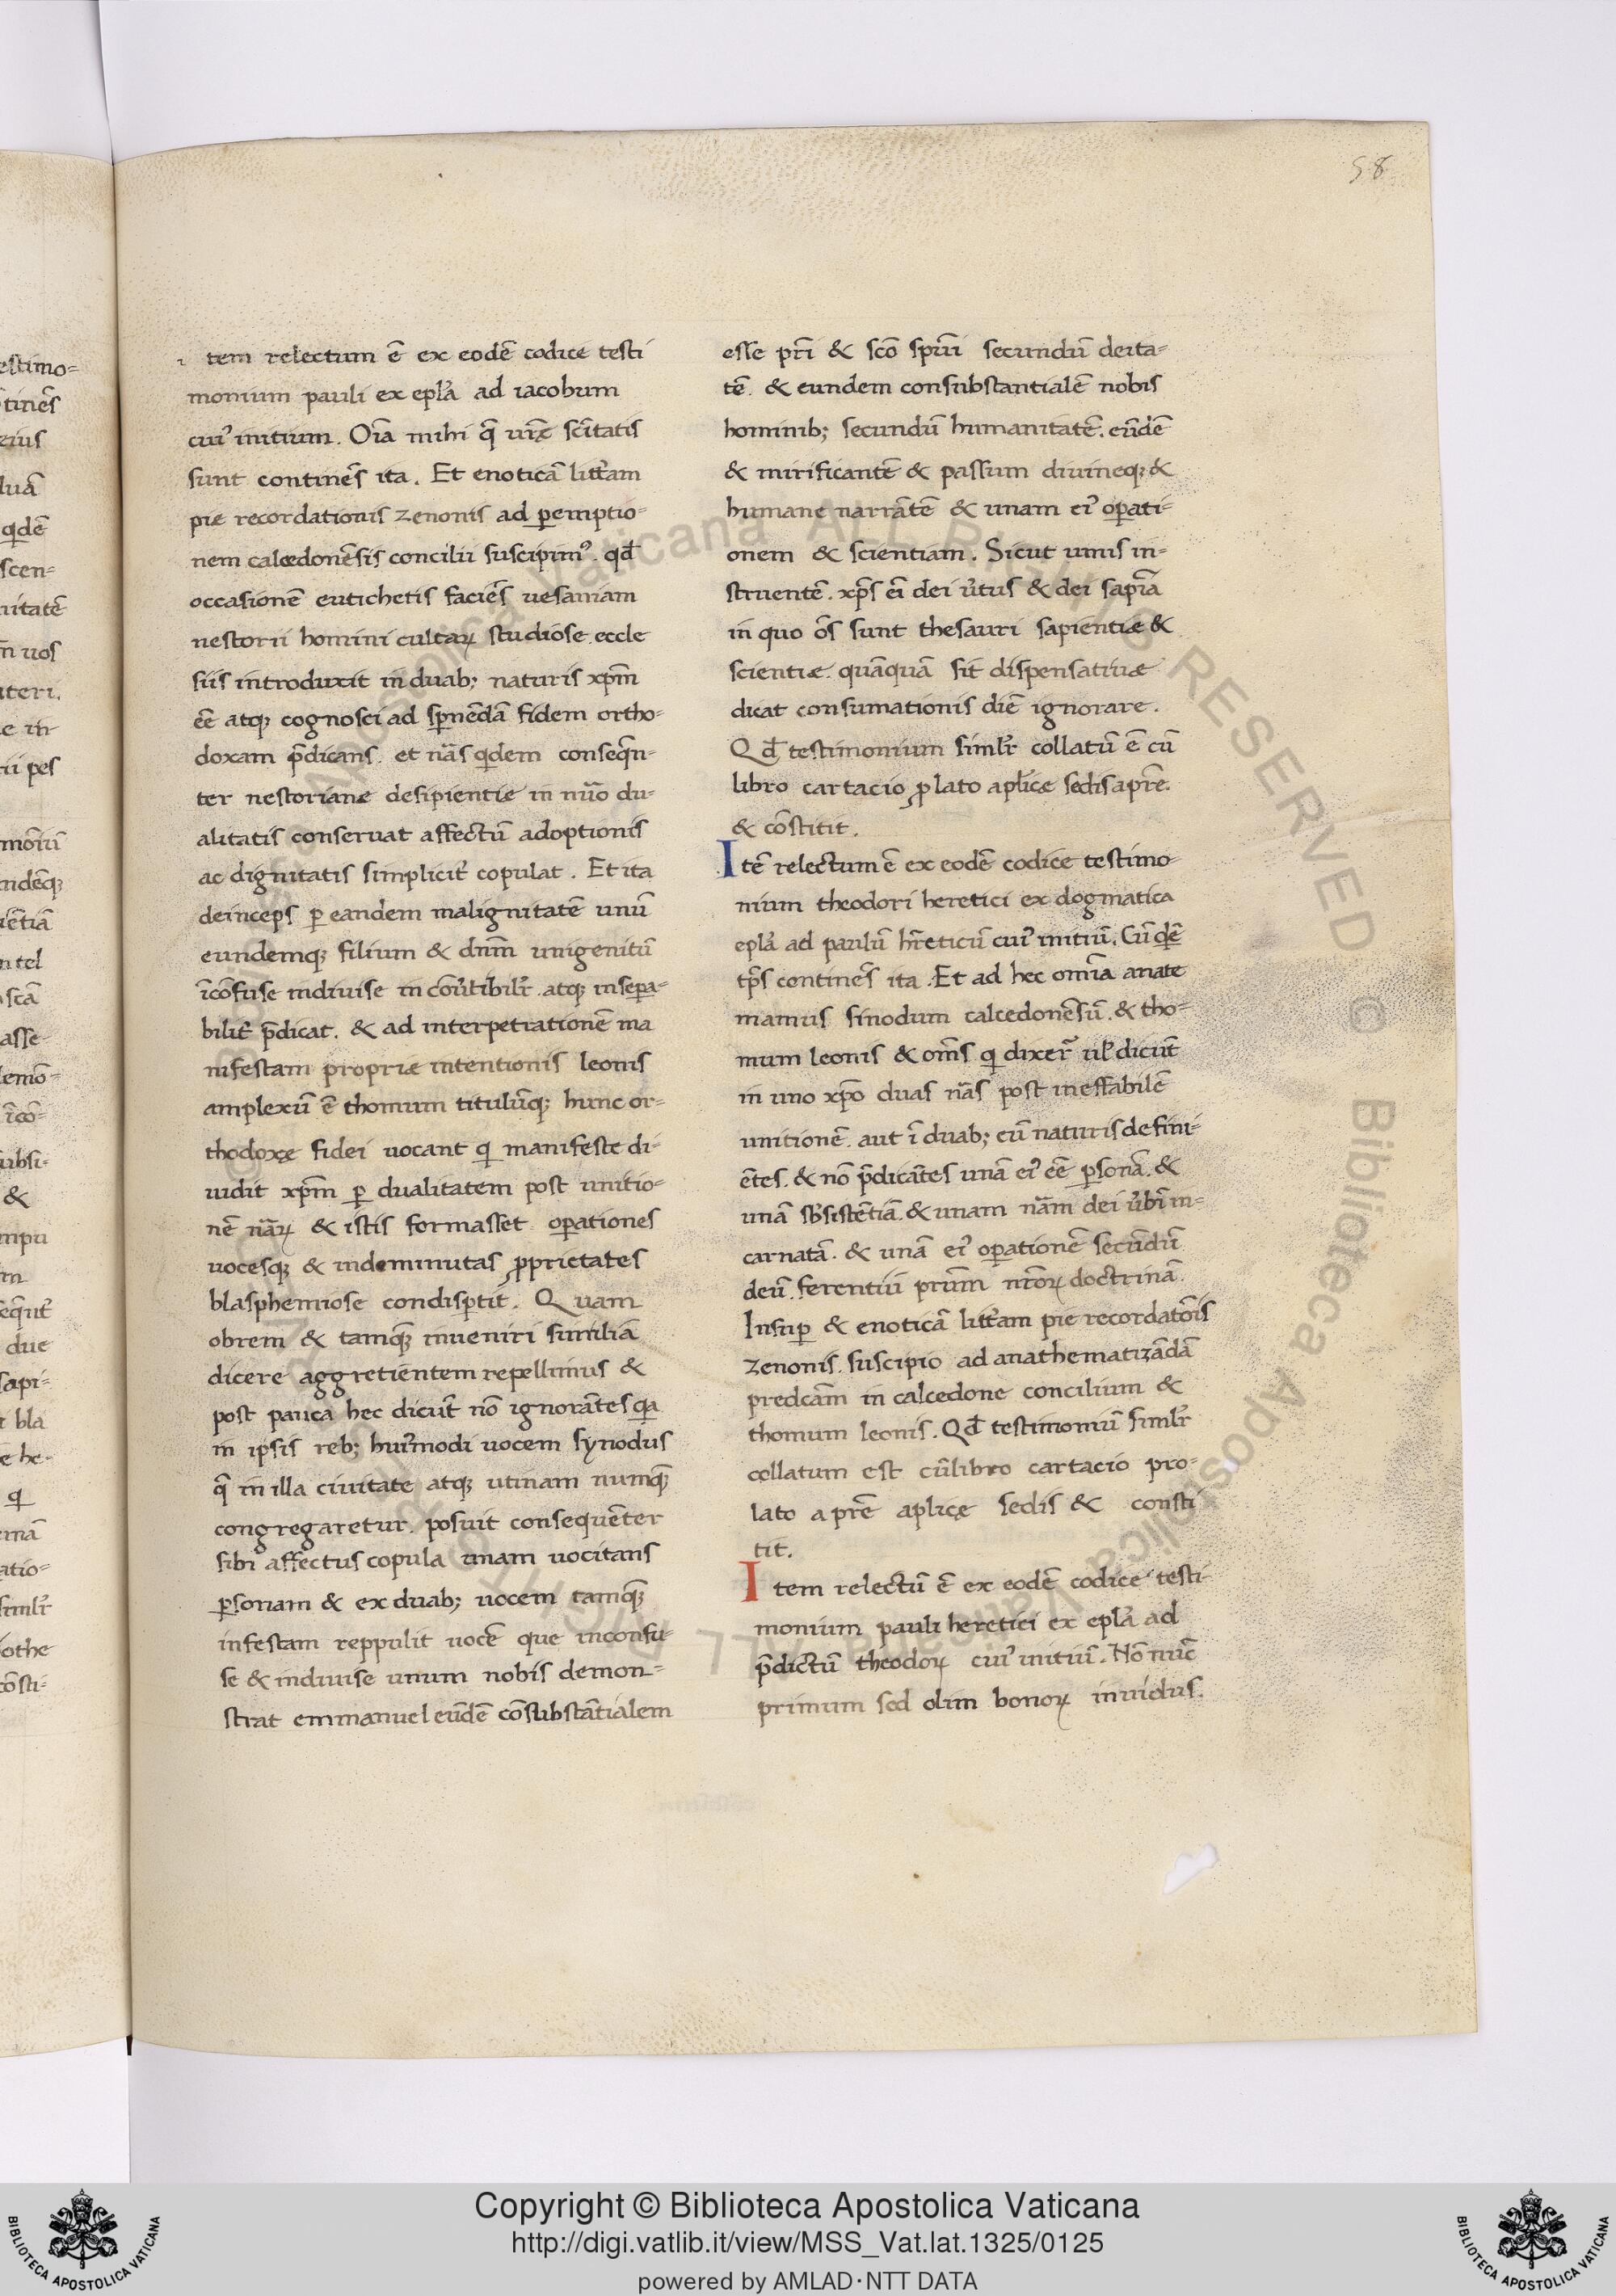 58
tem relectum ē ex eodē codice testi
monium pauli ex epl̃a ad iacobum
cui᾽ initium. Oĩa mihi q̃ ur̃ę sc̃itatis
sunt continẽs ita. Et enoticã litt̃am
pie recordationis zenonis ad ꝑemptio-
nem calcedonẽsis concilii suscipim᾽. qđ
occasionẽ eutichetis faciẽs uesaniam
nestorii homini cultaꝝ studiose eccle
siis introduxit in duab; naturis xp̃m
eẽ atq; cognosci ad sꝑnẽdã fidem ortho-
doxam p̃dicans. et nãs q̃dem conseq̃n-
ter nestoriane desipientie in nũo du-
alitatis conseruat affectũ adoptionis
ac dignitatis simplicit̃ copulat. Et ita
deinceps ꝑ eandem malignitatẽ unũ
eundemq; filium & dñm unigenitũ
ĩcõfuse indiuise incõũtibilr̃. atq; inseꝑa-
bilit̃ p̃dicat. & ad interpetrationẽ ma
nifestam propriæ intentionis leonis
amplexũ ē thomum titulũq; hunc or-
thodoxę fidei uocant q̃ manifeste di-
uidit xp̃m ꝑ dualitatem post unitio-
nẽ nãꝝ & istis formasset oꝑationes
uocesq; & indeminutas ꝓprietates
blasphemiose condisꝑtit. Quam
obrem & tamq̃ inueniri similia
dicere aggretientem repellimus &
post pauca hec dicũt nõ ignorãtes q̃a
in ipsis reb; hui᾽modi uocem synodus
q̃ in illa ciuitate atq; utinam numq̃
congregaretur. posuit consequẽter
sibi affectus copula unam uocitans
ꝑsonam & ex duab; uocem tamq̃
infestam reppulit uocẽ que inconfu-
se & indiuise unum nobis demon-
strat emmanuel eũdẽ cõsubstãtialem
esse pr̃i & sc̃o sp̃ui secundũ deita-
tẽ. & eundem consubstantialẽ nobis
hominib; secundũ humanitatẽ. eũdẽ
& mirificantẽ & passum diuineq; &
humane narrãtẽ & unam ei᾽ oꝑati-
onem & scientiam. Sicut unis in-
struentẽ. xp̃s eĩ dei ũtus & dei sap̃ia
in quo õs sunt thesauri sapientiæ &
scientiæ. quãquã sit dispensatiuæ
dicat consumationis diẽ ignorare.
Qđ testimonium similr̃ collatũ ē cũ
libro cartacio ꝓlato aplicæ sedis a pr̃e.
& cõstitit.
Itẽ relectum ē ex eodẽ codice testimo-
nium theodori heretici ex dogmatica
epl̃a ad paulũ hr̃eticũ cui᾽ initiũ. Cũ q̃dẽ
tp̃s continẽs ita. Et ad hec omĩa anate
mamus sinodum calcedonẽsũ. & tho-
mum leonis & om̃s q̃ dixer̃ ul̃ dicũt
in uno xp̃o duas nãs post ineffabilẽ
unitionẽ. aut ĩ duab; eũ naturis defini-
ẽtes. & nõ p̃dicãtes unã ei᾽ eẽ ꝑsonã. &
unã sb̃sistẽtiã. & unam nãm dei ũbi in-
carnatã. & unã ei᾽ oꝑationẽ secũdũ
deũ. ferentiũ pr̃um nr̃oꝝ doctrinã.
Insuꝑ & enoticã litt̃am pie recordatõis
zenonis. suscipio ad anathematizãdã
predcãm in calcedone concilium &
thomum leonis. Qđ testimoniũ similr̃
collatum est cũ libro cartacio pro-
lato a pr̃e aplicę sedis & consti
tit.
Item relectũ ē ex eodẽ codice testi-
monium pauli heretici ex epl̃a ad
p̃dictũ theodoꝝ cui᾽ initiũ. Nõ nũc
primum sed olim bonoꝝ inuidus.
Copyright © Biblioteca Apostolica Vaticana
http://digi.vatlib.it/view/MSS_Vat.lat.1325/0125
powered by AMLAD·NTT DATA